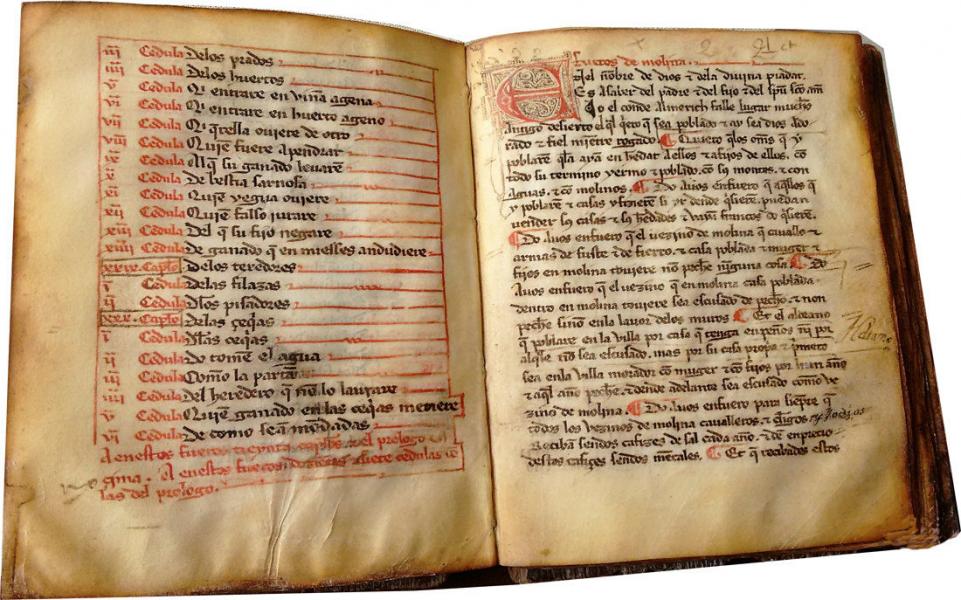 iii Cedula Delos prados
iiii Cedula Delos huertos
v Cedula Qi entrare en viña agena
vi Cedula Qi entrare en huerto ageno
vii Cedula Qi qrella ouiere de otro
viii Cedula Quiē fuere apendrar
ix Cedula Al q̄ su ganado leuarē
x Cedula De bestia sarnosa
xi Cedula Quiē yegua ouiere
xii Cedula Quiē falso jurare
xiii Cedula Del q̄ su fijo negare
xiiii Cedula De ganado q̄ en miesses andudiere
xxix Caplo Delos texedores
i Cedula Delas filazas
ii Cedula Dlos pisadores
xxx Caplo Delas çeqias
i Cedula Dlas ceqias
ii Cedula Do tomē el agua
iii Cedula Como la partā
iiii Cedula Del heredero q̄ nō lo laurare
v Cedula Quiē ganado en las çeqias metiere
vi Cedula De como seā mōdadas
A en estos fueros treynta el prologo
A en estos fueros siete cedulas
las del prologo.
Fueros de molina
El nōbre de dios τ dela diuina piadat.
Es asaber del padre τ del fijo τ del spū
Yo el conde Almerich falle lugar mucho
antigo desierto el ql̄ qero q̄ sea poblado τ ay sea dios ado
rado τ fiel miētre rogado. Quiero qlos oms q̄ y
poblarē qla ayā en hedat a ellos τ afijos de ellos. cō
todo su termino yermo τ poblado. cō sꝯ montes. τ con
aguas. τ cō molinos. Do auos enfuero q̄ aqllos q̄
y poblarē τ casas y fizierē si yr dende qsierē. puedan
uender sꝯ casas τ sꝯ hedades τ francos do qsierē.
Do auos enfuero q̄ el vezino de molina q̄ cauallo τ
armas de fuste τ de fierro. τ casa poblada τ muger τ
fijos en molina touiere nō peche nīguna cosa Do
auos enfuero q̄ el vezino q̄ en molina casa poblada
dentro en molina touiere sea escusado de pecho. τ non
peche sino enla lauor delos muros Et el aldeano
q̄ poblare en la villa por casa q̄ tenga en peños nī por
alqle nō sea escusado. mas por su casa propia τ
sea enla villa morador cō muger τ cō fijos por hun año
τ aql año peche. τ dende adelante sea escusado como ve
zino de molina. Do auos enfuero para siempre q̄
todos los vezinos de molina caualleros. τ clerigos τ Iodios
Reciban sendos cafizes de sal cada año. τ dē en precio
destos cafizes sendos mēcales. Et q̄ recabades estos
Aldeano